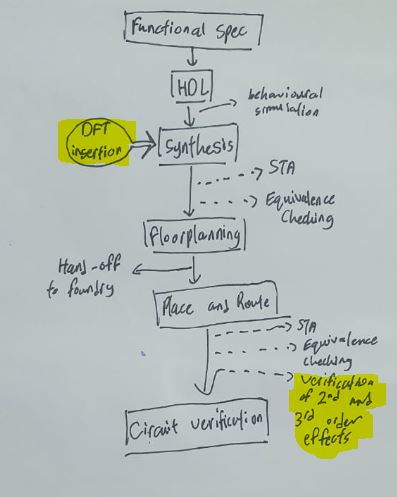 Functional spec
HDL
behavioural
simulation
DFT
insertion
Synthesis
STA
Equivalence
Checking
floorplanning
Hand-off
to foundry
Place and Route
STA
Equivalence
checking
Verification
of 2nd and
3rd order
effects
Circuit verification